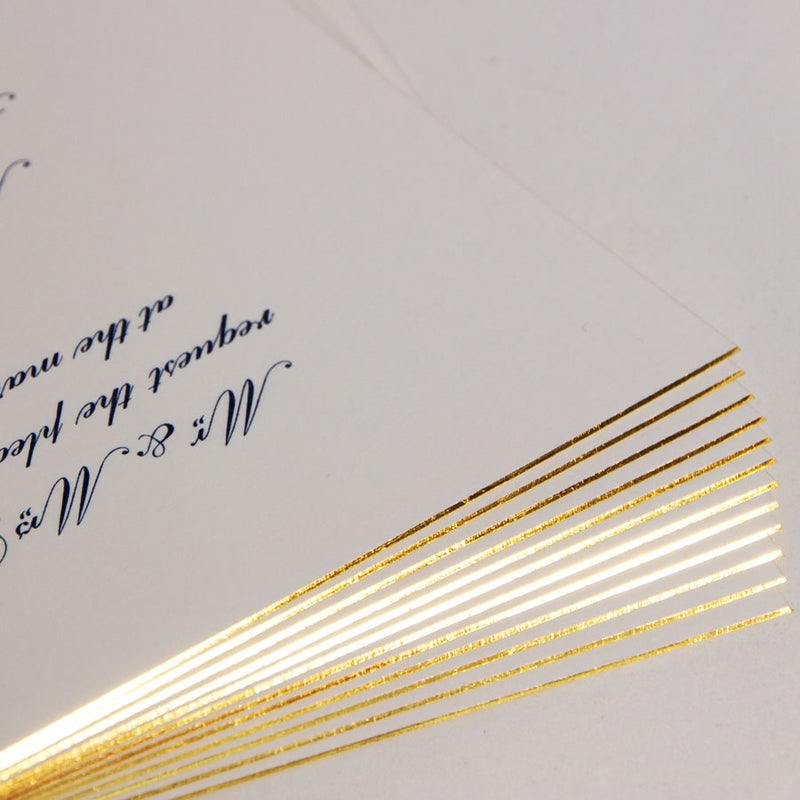 Mr. & Mrs.
request the plea
at the mar